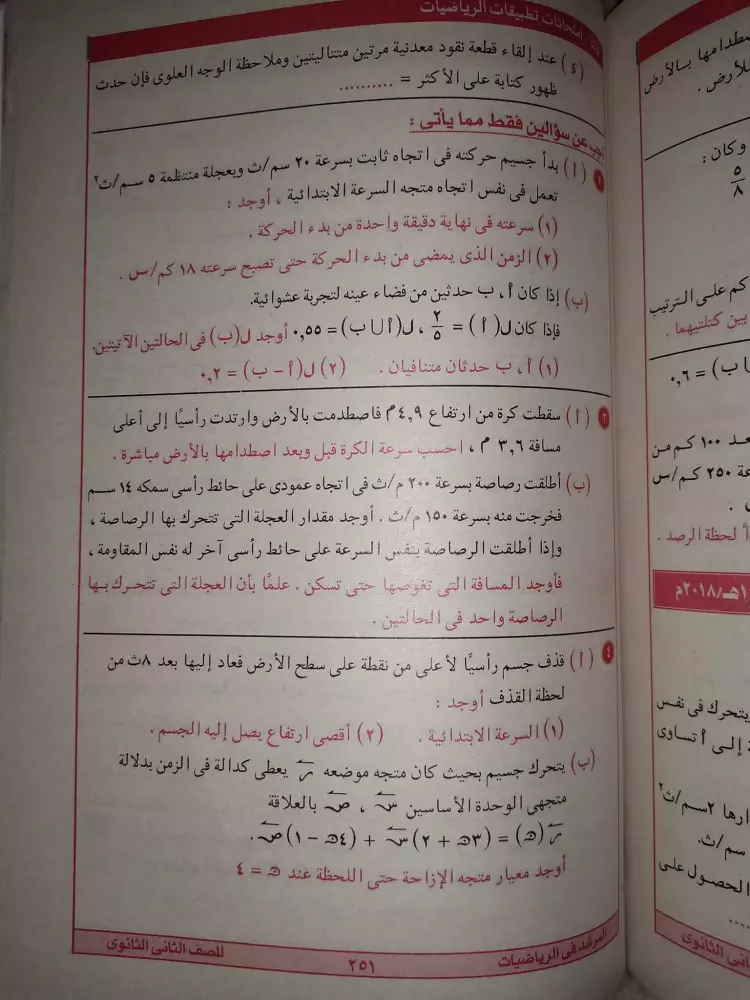 امتحانات تطبيقات الرياضيات
(٤) عند إلقاء قطعة نقود معدنية مرتين متتاليتين وملاحظة الوجه العلوى فإن حدث
ظهور كتابة على الأكثر = ..........
أجب عن سؤالين فقط مما يأتى :
(أ) بدأ جسيم حركته فى اتجاه ثابت بسرعة ٢٠ سم/ث وبعجلة منتظمة ٥ سم/ث٢
تعمل فى نفس اتجاه متجه السرعة الابتدائية ، أوجد :
(١) سرعته فى نهاية دقيقة واحدة من بدء الحركة .
(٢) الزمن الذى يمضى من بدء الحركة حتى تصبح سرعته ١٨ كم/س .
(ب) إذا كان أ ، ب حدثين من فضاء عينه لتجربة عشوائية.
فإذا كان ل(أ) = ٢/٥ ، ل(أ ∪ ب) = ٠,٥٥ أوجد ل(ب) فى الحالتين الآتيتين.
(١) أ ، ب حدثان متنافيان . (٢) ل(أ – ب) = ٠,٢
٣ (أ) سقطت كرة من ارتفاع ٤,٩ م فاصطدمت بالأرض وارتدت رأسيًا إلى أعلى
مسافة ٣,٦ م ، احسب سرعة الكرة قبل وبعد اصطدامها بالأرض مباشرة .
(ب) أطلقت رصاصة بسرعة ٢٠٠ م/ث فى اتجاه عمودى على حائط رأسى سمكه ١٤ سم
فخرجت منه بسرعة ١٥٠ م/ث . أوجد مقدار العجلة التى تتحرك بها الرصاصة ،
وإذا أطلقت الرصاصة بنفس السرعة على حائط رأسى آخر له نفس المقاومة ،
فأوجد المسافة التى تغوصها حتى تسكن . علمًا بأن العجلة التى تتحرك بها
الرصاصة واحد فى الحالتين .
٤ (أ) قذف جسم رأسيًا لأعلى من نقطة على سطح الأرض فعاد إليها بعد ٨ث من
لحظة القذف أوجد :
(١) السرعة الابتدائية . (٢) أقصى ارتفاع يصل إليه الجسم .
(ب) يتحرك جسيم بحيث كان متجه موضعه ر يعطى كدالة فى الزمن بدلالة
متجهى الوحدة الأساسين س ، ص بالعلاقة
ر(ن) = (٣ن + ٢)س + (٤ن – ١)ص.
أوجد معيار متجه الإزاحة حتى اللحظة عند ن = ٤
المرشد فى الرياضيات
٢٥١
للصف الثانى الثانوى
صطدامها بالأرض
للأرض .
وكان :
٥/٨
كم على الترتيب
بين كتلتيهما .
ب) = ٠,٦
بعد ١٠٠ كم من
٢٥٠ كم/س
لحظة الرصد .
هـ/٢٠١٨م
يتحرك فى نفس
إلى أ تساوى
٢سم/ث٢
سم/ث.
الحصول على
الثانوى